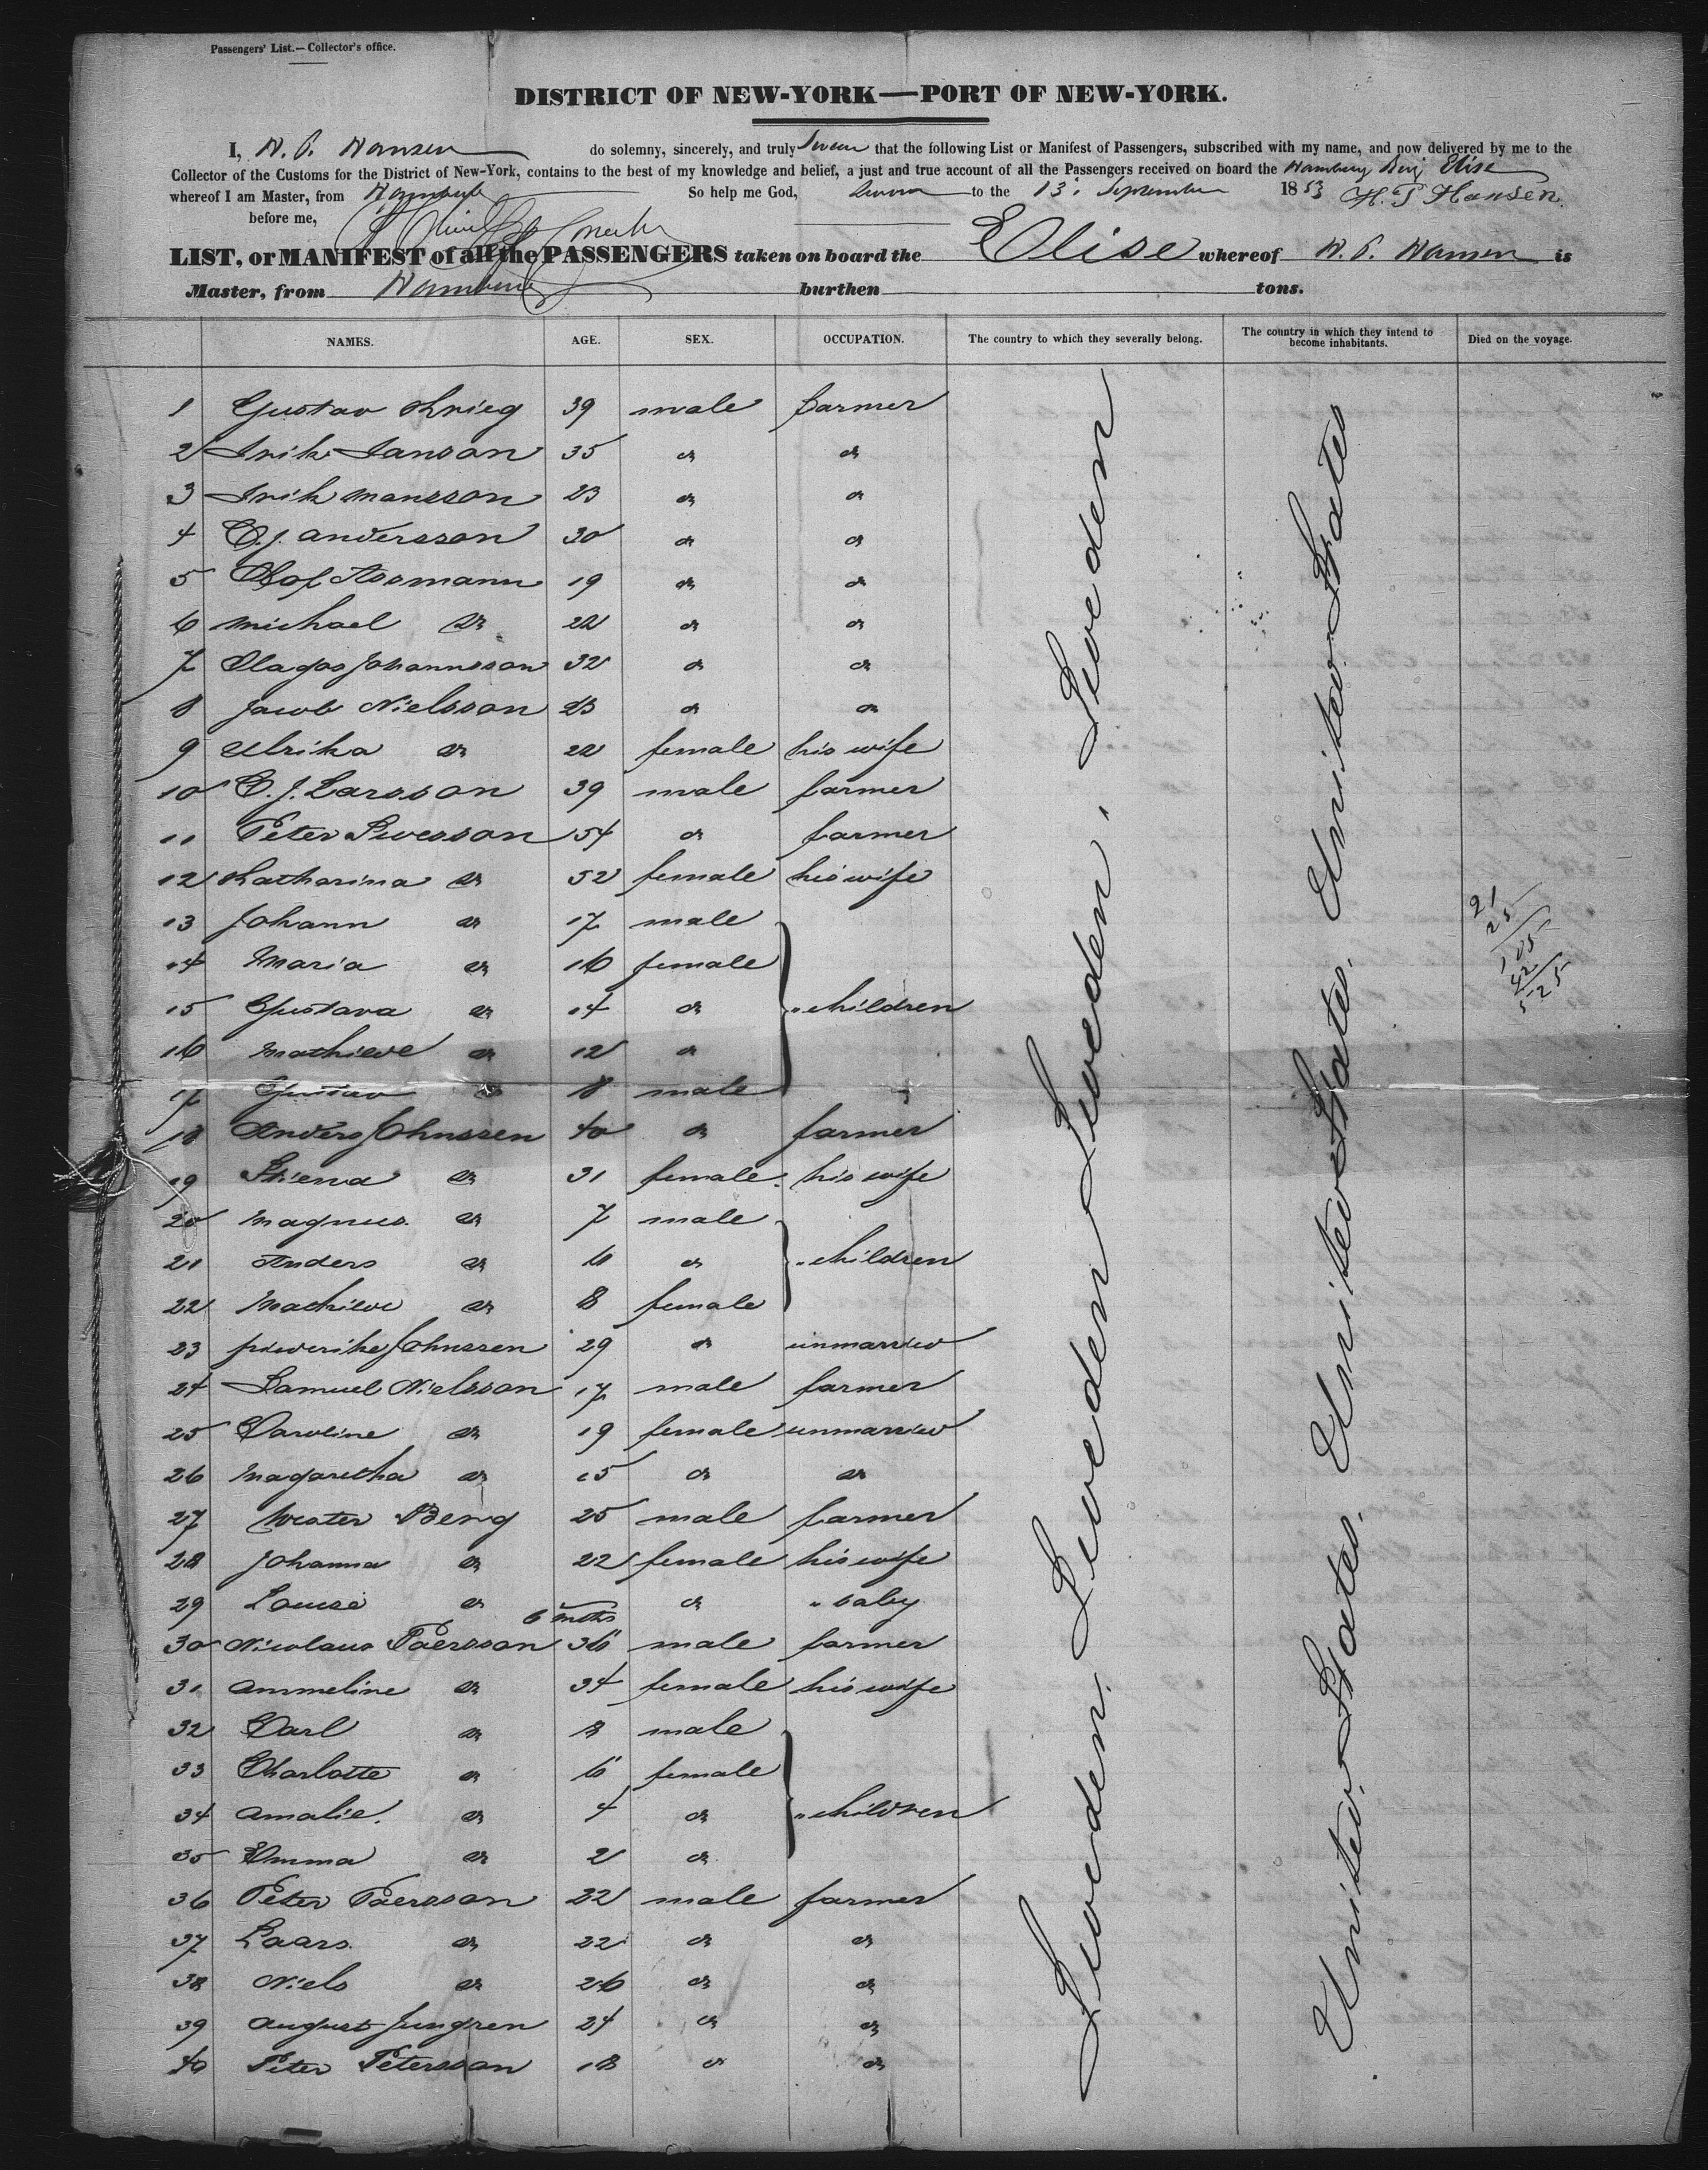 Passengers' List.—Collector's office.
DISTRICT OF NEW-YORK—PORT OF NEW-YORK.
I, H. P. Hansen do solemny, sincerely, and truly Swear that the following List or Manifest of Passengers, subscribed with my name, and now delivered by me to the
Collector of the Customs for the District of New-York, contains to the best of my knowledge and belief, a just and true account of all the Passengers received on board the Hamburg Brig Elise
whereof I am Master, from Hamburg So help me God, Sworn to the 13. September 1853 H. P Hansen.
before me,
LIST, or MANIFEST of all the PASSENGERS taken on board the Elise whereof H. P. Hansen is
Master, from Hamburg burthen tons.
NAMES. AGE. SEX. OCCUPATION. The country to which they severally belong. The country in which they intend to become inhabitants. Died on the voyage.
1 Gustav Krieg 39 male farmer
2 Erik Janson 35 do do
3 Erik Mansson 23 do do
4 C. J. Andersson 30 do do
5 Olof Assmann 19 do do
6 Michael do 22 do do
7 Johannsson 32 do do
8 Jacob Nielsson 23 do do
9 Ulrika do 22 female his wife
10 C. J. Larsson 39 male farmer
11 Peter Swesson 54 do farmer
12 Katharina do 52 female his wife
13 Johann do 17 male
14 Maria do 16 female
15 Gustava do 14 do " children
16 Mathilde do 12 do
17 Gustav do 8 male
18 Anders Johnssen 40 do farmer
19 Stiena do 31 female his wife
20 Magnus do 7 male
21 Anders do 6 do " children
22 Mathilde do 8 female
23 Friederike Johnssen 29 do unmarried
24 Samuel Nielsson 17 male farmer
25 Caroline do 19 female unmarried
26 Magaretha do 15 do do
27 Wester Berg 25 male farmer
28 Johanna do 22 female his wife
29 Louise do 6 mths do " baby
30 Nicolaus Paersson 36 male farmer
31 Ammeline do 34 female his wife
32 Carl do 8 male
33 Charlotte do 6 female
34 Amalie. do 4 do " children
35 Emma do 2 do
36 Peter Paersson 22 male farmer
37 Laars. do 22 do do
38 Niels do 26 do do
39 August Jungren 24 do do
40 Peter Petersson 18 do do
Sweden. Sweden Sweden Sweden. Sweden
United States. United States. United States
21
25
105
42
525